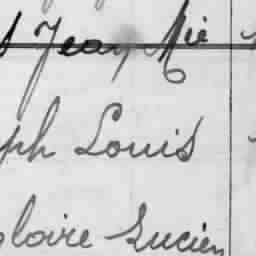 Jean Mie
ph Louis
loire Lucien